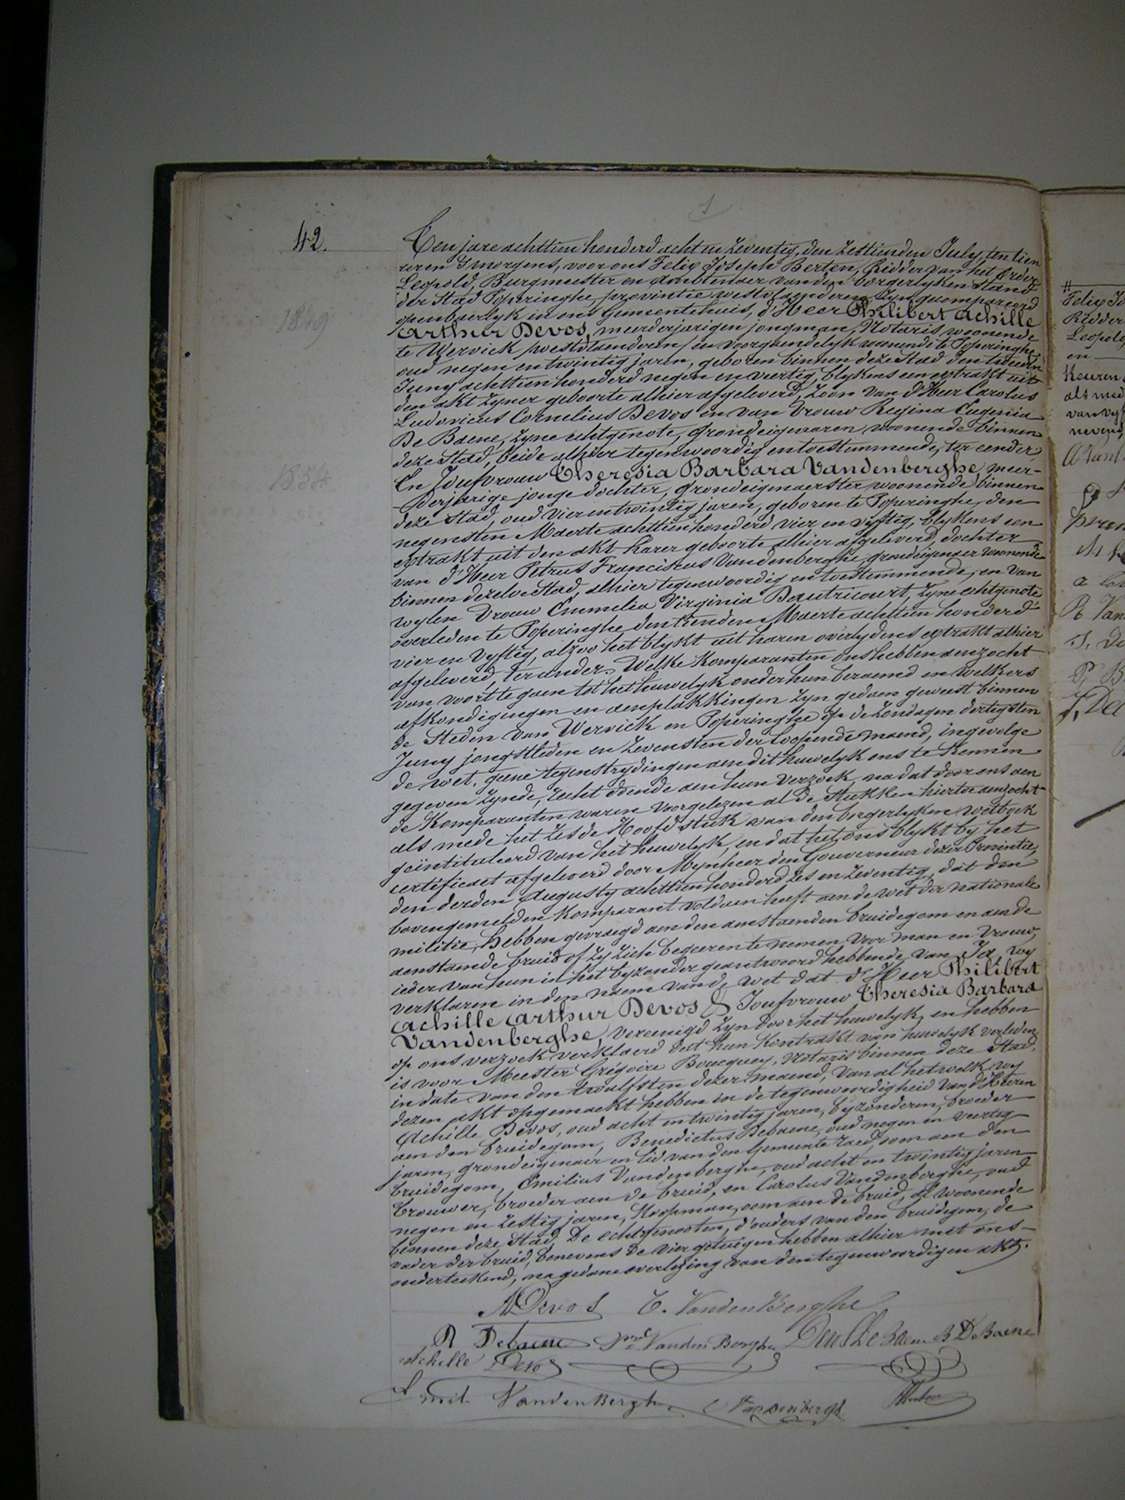 1
42.
Ten jare achttien honderd acht en zeventig, den zestienden July, ten tien
uren 's morgens, voor ons Felix Joseph Berten, Ridder van het Order
Leopold, Burgmeester en Ambtenaer van den borgerlyken stand
der Stad Poperinghe, provintie westvlaenderen zyn gecompareerd
openbaerlyk in ons Gemeentehuis, d'Heer Philibert Achille
1849
Arthur Devos, meerderjarigen jongman, Notaris woonende
te Wervick (westvlaenderen) en voorgaendelyk wonende te Poperinghe,
oud negen en twintig jaren, geboren binnen deze Stad den tweeden
Juny achttien honderd negen en veertig, blykens een extrakt uit
den akt zyner geboorte alhier afgeleverd, Zoon van d'Heer Carolus
Ludovicus Cornelius Devos en van Vrouw Regina Eugenia
De Baene, zyne echtgenote, Grondeigenaren woonende binnen
deze stad, beide alhier tegenwoordig en toestemmende, ter eender
En Joufvrouw Theresia Barbara Vandenberghe, meer-
1854
derjarige jonge dochter, Grondeigenaerster woonende binnen
deze stad, oud vier en twintig jaren, geboren te Poperinghe, den
negensten Maerte achttien honderd vier en vyftig, blykens een
extrakt uit den akt harer geboorte alhier afgeleverd, dochter
van d'Heer Petrus Franciskus Vandenberghe, grondeigenaer woonende
binnen dezelve Stad, alhier tegenwoordig en toestemmende, en van
wylen Vrouw Emmelia Virginia Beautricourt, zyne echtgenote
overleden te Poperinghe, den tienden Maerte achttien honderd
vier en vyftig, alzoo het blykt uit haren overlydens extrakt alhier
afgeleverd, ter ander. Welke Komparanten ons hebben aenzocht
van voort te gaen tot het huwelyk onder hun beraemd en welkers
afkondigingen en aenplakkingen zyn gedaen geweest binnen
de Steden van Wervick en Poperinghe op de zondagen dertigsten
Juny jongstleden en zevensten der loopende maend, ingevolge
de wet, geene tegenstrydingen aen dit huwelyk ons te kennen
gegeven zynde, recht doende aen hun verzoek, na dat door ons aen
de Komparanten waren voorgelezen al de Stukken hiertoe aenzocht
als mede het zesde Hoofdstuk van den borgerlyken wetboek
geintituleerd van het huwelyk, en dat het ons blykt by het
certificaet afgeleverd door Mynheer den Gouverneur dezer Provintie,
den derden Augusty achttien honderd zes en zeventig, dat den
bovengemelden Komparant voldaen heeft aen de wet der nationale
militie, hebben gevraegd aen den aenstaenden bruidegom en aen de
aenstaende bruid of zy zich begeeren te nemen voor man en vrouw,
ieder van hun in het byzonder geantwoord hebbende van Ja, wy
verklaren in den naem van de wet dat d'Heer Philibert
Achille Arthur Devos & Joufvrouw Theresia Barbara
Vandenberghe, vereenigd zyn door het huwelyk, en hebben
op ons verzoek verklaerd dat hun kontrakt van huwelyk verleden
is voor Meester Grégoire Boucquey, Notaris binnen deze Stad,
in date van den twaelfsten dezer maend, van al het welk wy
dezen akt opgemaekt hebben in de tegenwoordigheid van d'Heeren
Achille Devos, oud acht en twintig jaren, byzonderen, broeder
aen den bruidegom, Benedictus Debaene, oud negen en veertig
jaren, grondeigenaer en lid van den Gemeente raed, oom aen den
bruidegom, Emilius Vandenberghe, oud acht en twintig jaren
brouwer, broeder aen de bruid, en Carolus Vandenberghe, oud
negen en zestig jaren, Koopman, oom aen de bruid, al woonende
binnen deze Stad. De echtgenooten, d'ouders van den bruidegom, de
vader der bruid, benevens de vier getuigen hebben alhier met ons
onderteekend, na gedane overlezing van den tegenwoordigen akt.
A Devos T. VandenBerghe
R Debaene Vanden Berghe B DeBaene
Achille Devos
Emil VandenBerghe C Vandenberghe
Felix Jo
Ridder
Leopold
en
Keuren
als med
van vyf
nevens